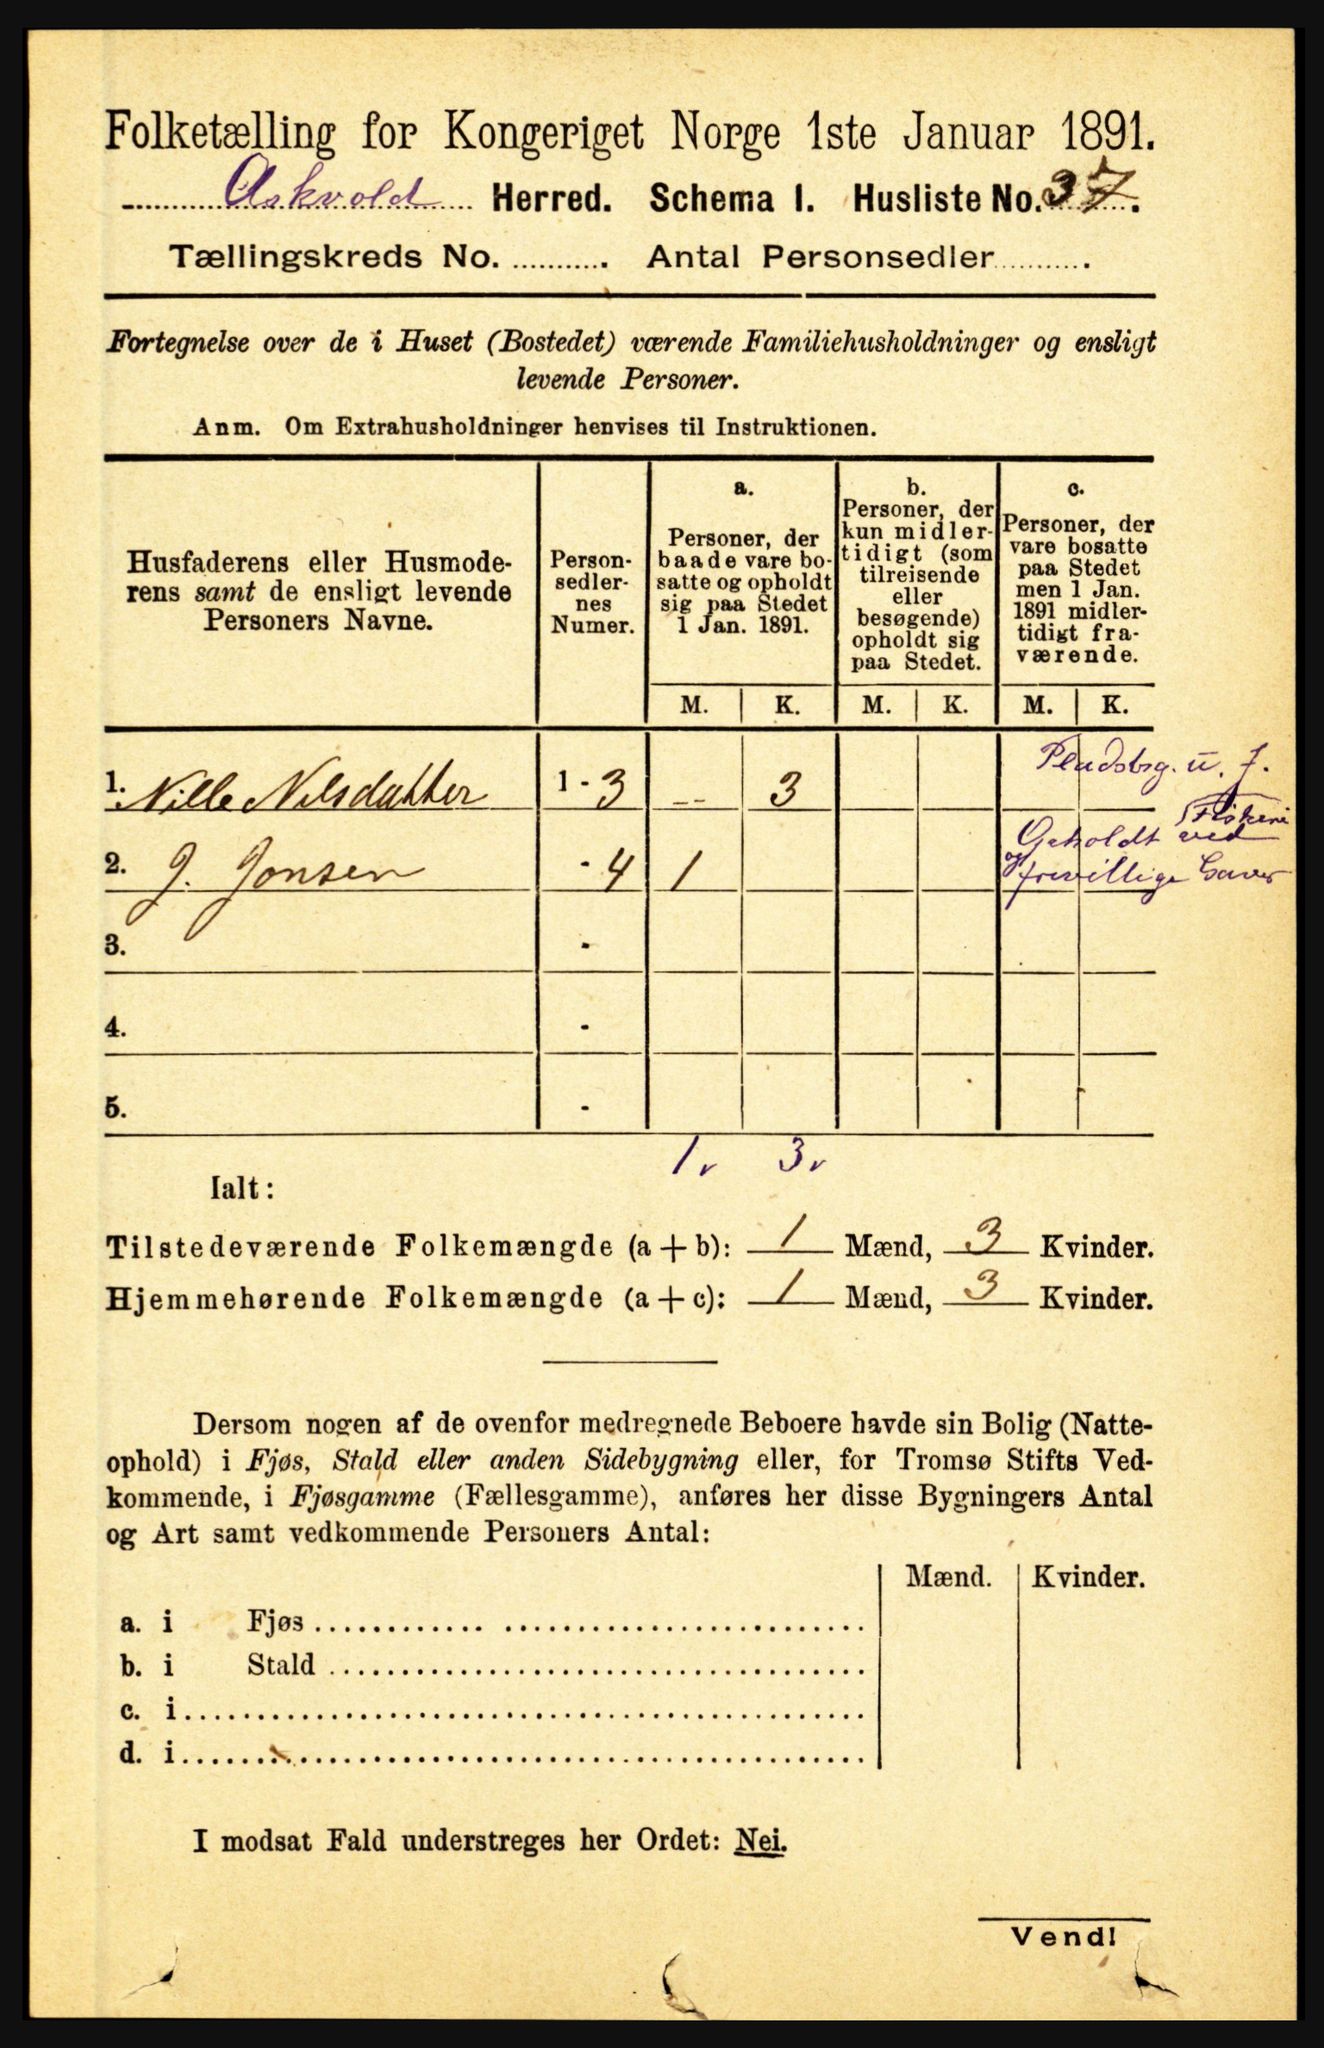 Folketælling for Kongeriget Norge 1ste Januar 1891.
Askvold Herred. Schema I. Husliste No. 37.
Tællingskreds No. .......... . Antal Personsedler .......... .
Fortegnelse over de i Huset (Bostedet) værende Familiehusholdninger og ensligt
levende Personer.
Anm. Om Extrahusholdninger henvises til Instruktionen.
Husfaderens eller Husmode-
rens samt de ensligt levende
Personers Navne.
Person-
sedler-
nes
Numer.
a.
Personer, der
baade vare bo-
satte og opholdt
sig paa Stedet
1 Jan. 1891.
b.
Personer, der
kun midler-
tidigt (som
tilreisende
eller
besøgende)
opholdt sig
paa Stedet.
c.
Personer, der
vare bosatte
paa Stedet
men 1 Jan.
1891 midler-
tidigt fra-
værende.
M. K. M. K. M. K.
Pladsbrg. u. J.
1. Nille Nilsdatter 1 - 3 -- 3
Fiskeri
2. J. Jonsen - 4 1
ved
og frivillige Gaver
3. -
4. -
5. -
1 3
Ialt:
Tilstedeværende Folkemængde (a + b): 1 Mænd, 3 Kvinder.
Hjemmehørende Folkemængde (a + c): 1 Mænd, 3 Kvinder.
Dersom nogen af de ovenfor medregnede Beboere havde sin Bolig (Natte-
ophold) i Fjøs, Stald eller anden Sidebygning eller, for Tromsø Stifts Ved-
kommende, i Fjøsgamme (Fællesgamme), anføres her disse Bygningers Antal
og Art samt vedkommende Personers Antal:
Mænd. Kvinder.
a. i Fjøs
b. i Stald
c. i
d. i
I modsat Fald understreges her Ordet: Nei.
Vend!